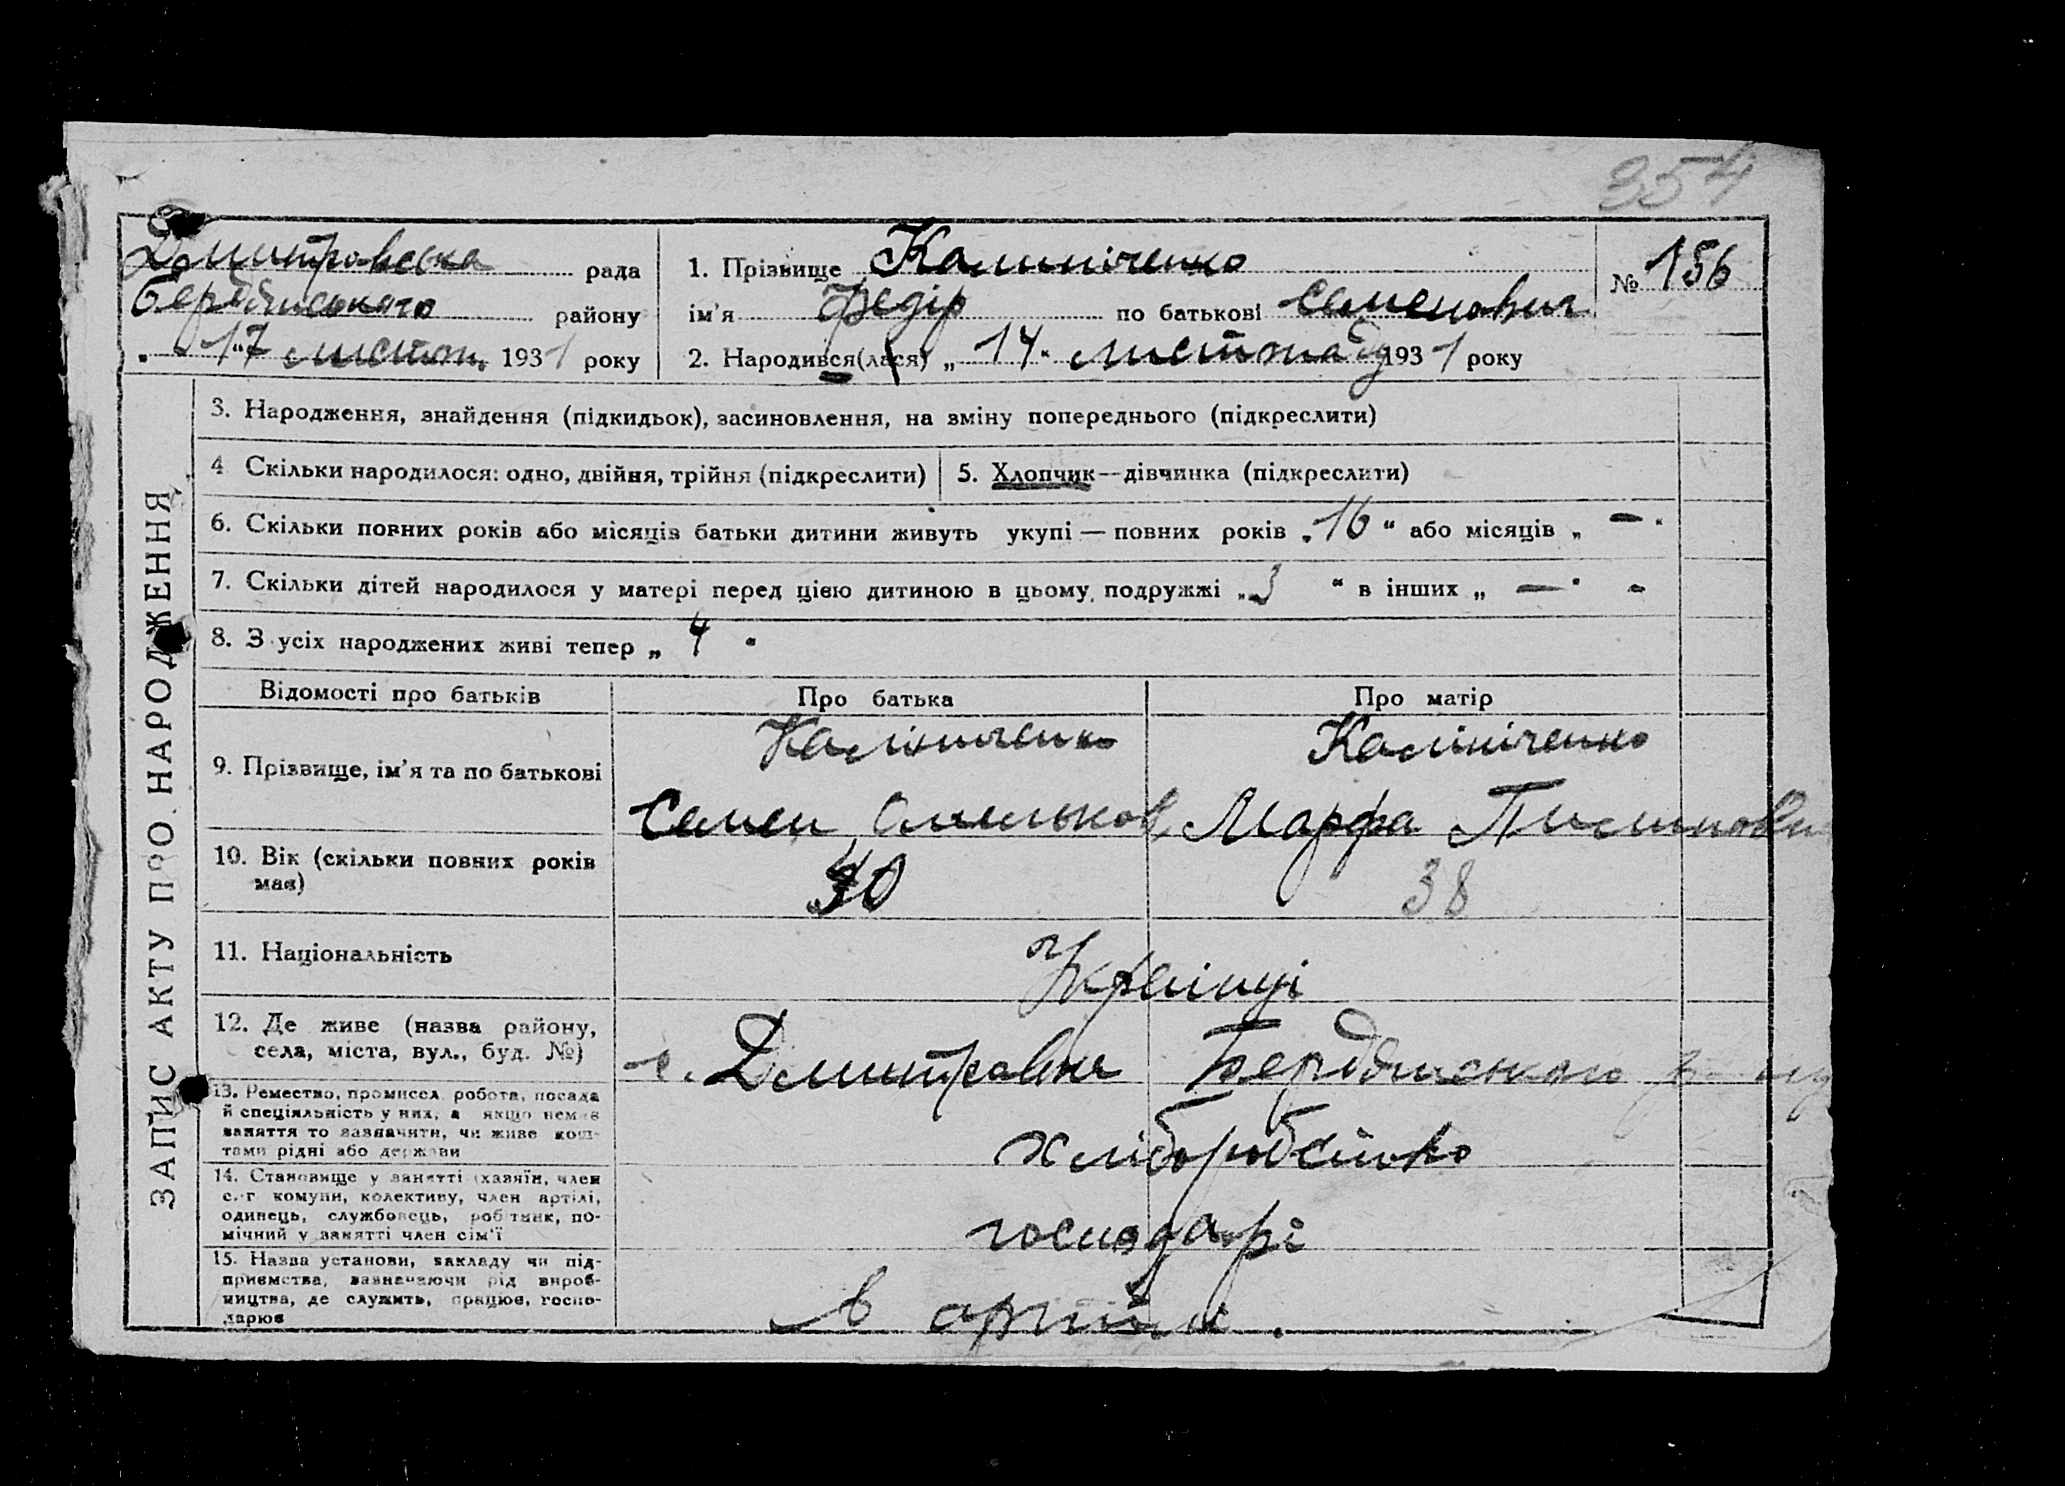 354
Дмитровська рада
Бердянського району
„17“ листоп. 1931 року
1. Прізвище Калиніченко
ім'я Федір по батькові Семенович
№ 156
2. Народився(лася) „14“ листопаду 1931 року
ЗАПИС АКТУ ПРО НАРОДЖЕННЯ
3. Народження, знайдення (підкидьок), засиновлення, на зміну попереднього (підкреслити)
4 Скільки народилося: одно, двійня, трійня (підкреслити)
5. Хлопчик—дівчинка (підкреслити)
6. Скільки повних років або місяців батьки дитини живуть укупі — повних років „16“ або місяців „—“
7. Скільки дітей народилося у матері перед цією дитиною в цьому подружжі „3“ в інших „—“
8. З усіх народжених живі тепер „4“
Відомості про батьків Про батька Про матір
9. Прізвище, ім'я та по батькові
Калініченко
Семен Омельков
Калініченко
Марфа
10. Вік (скільки повних років
має)
40
38
11. Національність
Українці
12. Де живе (назва району,
села, міста, вул., буд. №)
с. Дмитровка Бердянського р-ну
13. Ремество, промисел, робота, посада
й спеціяльність у них, а якщо немає
заняття то зазначити, чи живе кош-
тами рідні або держави
хліборобство
14. Становище у занятті (хазяїн, член
с.-г комуни, колективу, член артілі,
одинець, службовець, робітник, по-
мічний у занятті член сім'ї
господарі
15. Назва установи, закладу чи під-
приємства, зазначаючи рід вироб-
ництва, де служить, працює, госпо-
дарює
в артілі.